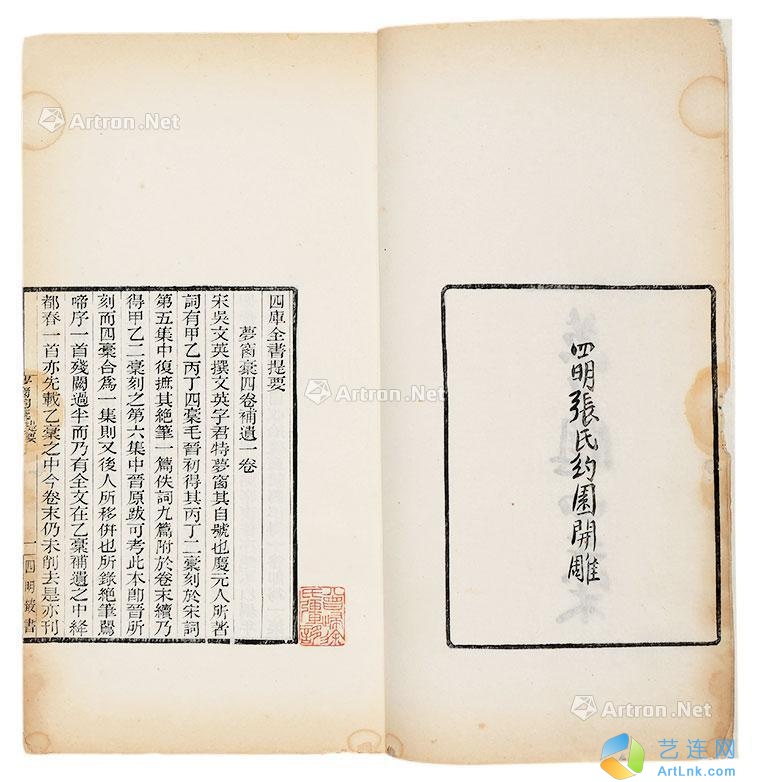 四明張氏約園開雕
四庫全書提要
夢窗稾四卷補遺一卷
宋吳文英撰文英字君特夢窗其自號也慶元人所著
詞有甲乙丙丁四稾毛晉初得其丙丁二稾刻於宋詞
第五集中復摭其絕筆一篇佚詞九篇附於卷末續乃
得甲乙二稾刻之第六集中晉原跋可考此本卽晉所
刻而四稾合爲一集則又後人所移倂也所錄絕筆鶯
啼序一首殘闕過半而乃有全文在乙稾補遺之中絳
都春一首亦先載乙稾之中今卷末仍未削去是亦刊
一 四明叢書
Artron.Net
Artron.Net
Artron.Net
Artron.Net
Artron.Net
艺连网
ArtLnk.com